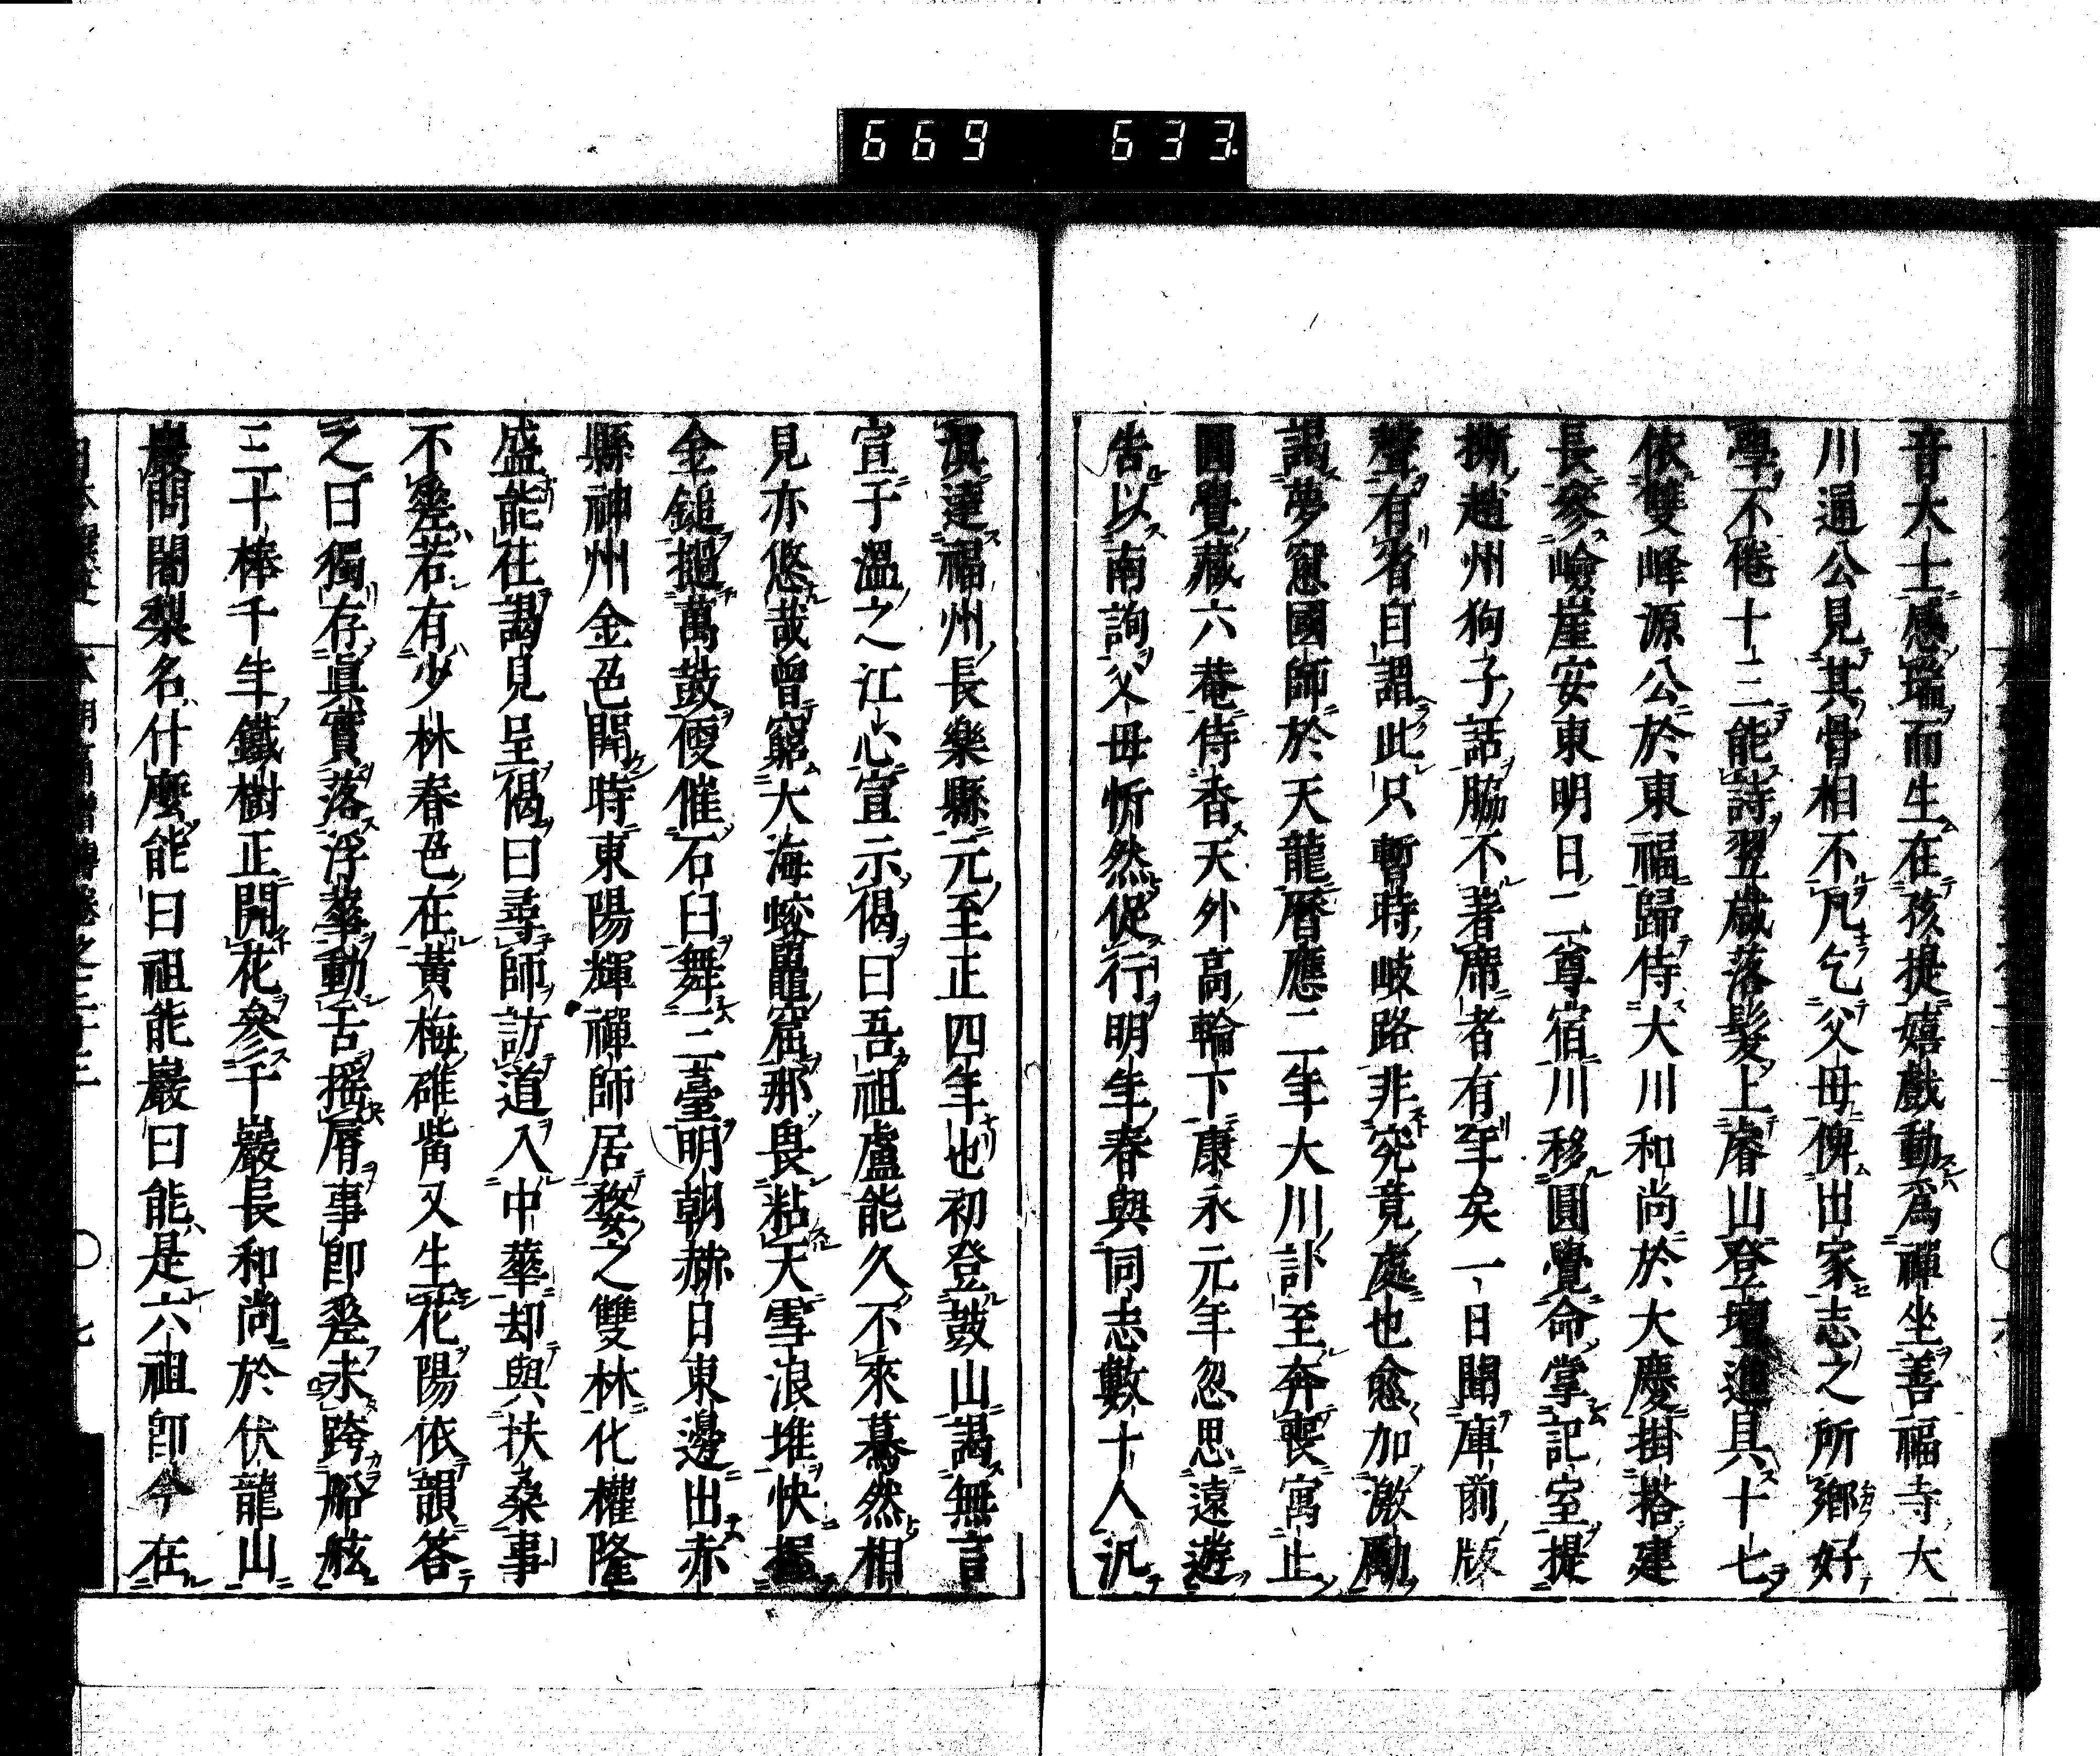 669 633.
音大士感瑞而生在孩提嬉戲動爲禪坐善福寺大
川通公見其骨相不凡乞父母俾出家志之所鄉好
學不倦十二能詩翌歲落髮上睿山登壇進具十七
依雙峰源公於東福歸侍大川和尚於大慶掛搭建
長參嶮崖安東明日二尊宿川移圓覺命掌記室提
撕趙州狗子話脇不著席者有年矣一日聞庫前版
聲有省自謂此只暫時岐路非究竟處也愈加激勵
謁夢窓國師於天龍曆應二年大川訃至奔喪寓止
圓覺藏六菴侍香天外高輪下康永元年忽思遠遊
告以南詢父母忻然促行明年春與同志數十人汎
溟達福州長樂縣元至正四年也初登鼓山謁無言
宣于溫之江心宣示偈曰吾祖盧能久不來驀然相
見亦悠哉曾窮大海蛟鼉窟那畏粘天雪浪堆快握
金鎚撾萬鼓便催石臼舞三臺明朝赫日東邊出赤
縣神州金色開時東陽輝禪師居婺之雙林化權隆
盛能往謁見呈偈曰尋師訪道入中華却與扶桑事
不差若有少林春色在黃梅碓觜又生花陽依韻答
之曰獨存眞實落浮華動舌搖脣事即差未跨船舷
三十棒千年鐵樹正開花參千巖長和尚於伏龍山
巖問闍梨名什麼能曰祖能巖曰能是六祖即今在
七